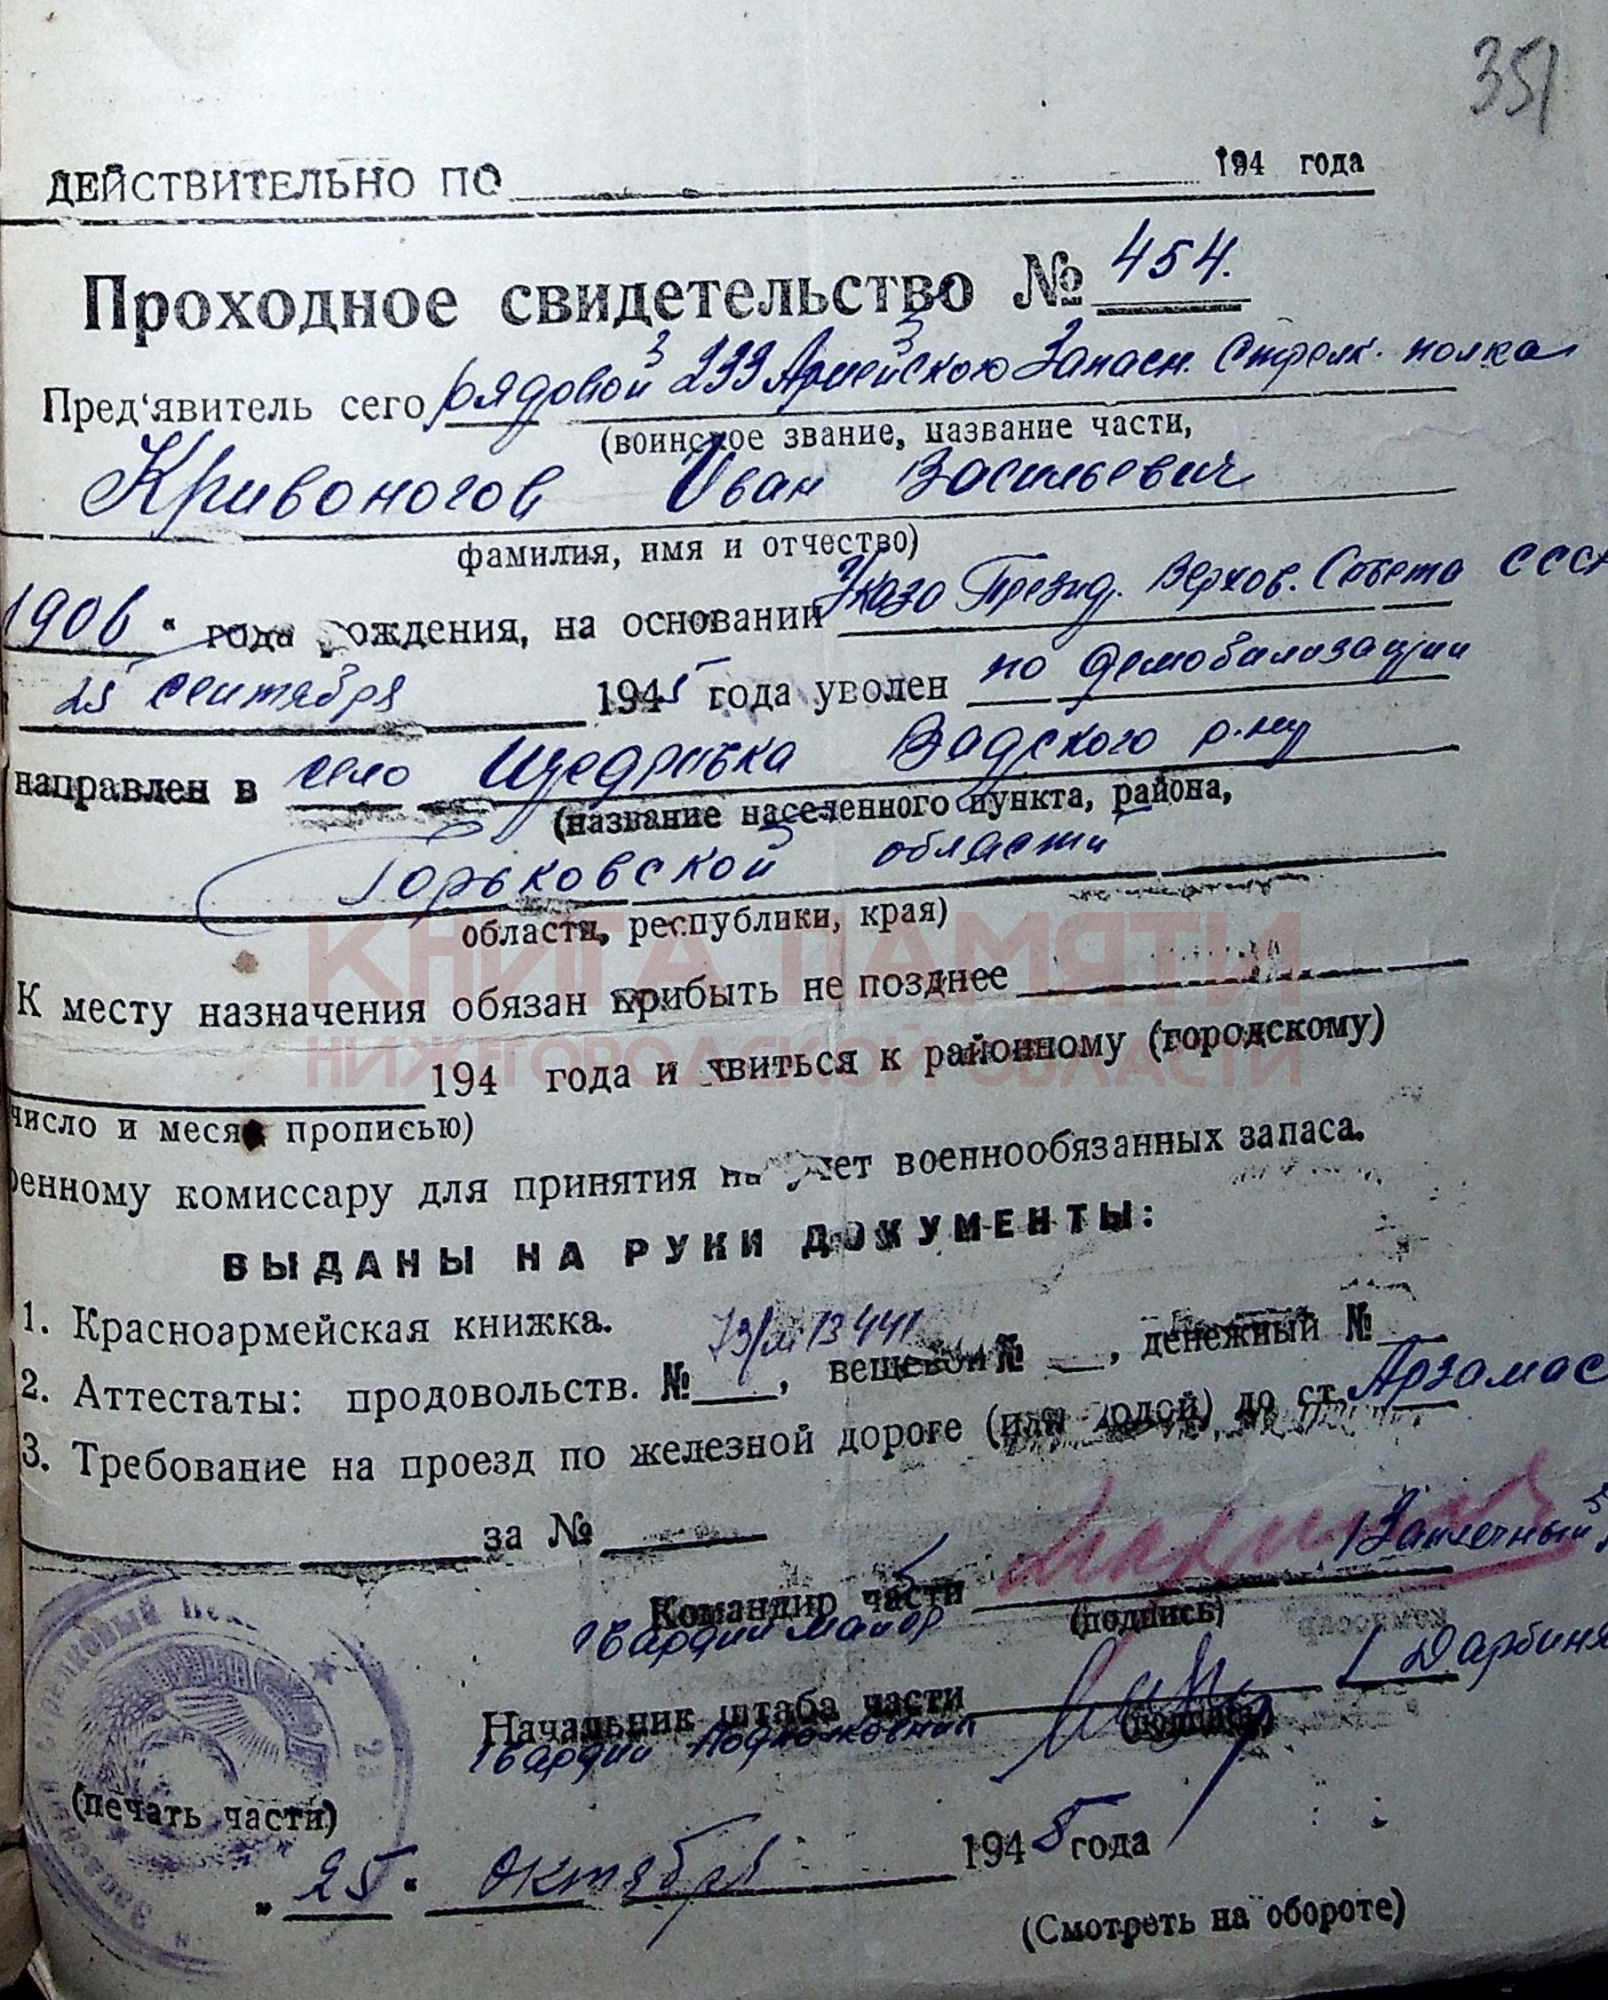 351
ДЕЙСТВИТЕЛЬНО ПО 194 года
Проходное свидетельство № 454.
Пред'явитель сего рядовой 233 Армейского Запасн. Стрелк. полка
(воинское звание, название части,
Кривоногов Иван Васильевич
фамилия, имя и отчество)
1906 " года рождения, на основании Указа Презид. Верхов. Совета СССР
25 сентября 1945 года уволен по демобилизации
направлен в село Щедровка Вадского р-на
(название населенного пункта, района,
Горьковской области
области, республики, края)
КНИГА ПАМЯТИ
К месту назначения обязан прибыть не позднее
НИЖЕГОРОДСКОЙ ОБЛАСТИ
194 года и явиться к районному (городскому)
число и месяц прописью)
военному комиссару для принятия на учет военнообязанных запаса.
ВЫДАНЫ НА РУКИ ДОКУМЕНТЫ:
1. Красноармейская книжка.
2. Аттестаты: продовольств. № 13441, вещевой № , денежный №
3. Требование на проезд по железной дороге (или водой) до ст. Арзамас
за №
Командир части /Заплечный/
гвардии майор (подпись)
Начальник штаба части / Дарбиня
гвардии подполковник (подпись)
(печать части)
„ 25 " октября 1945 года
(Смотреть на обороте)